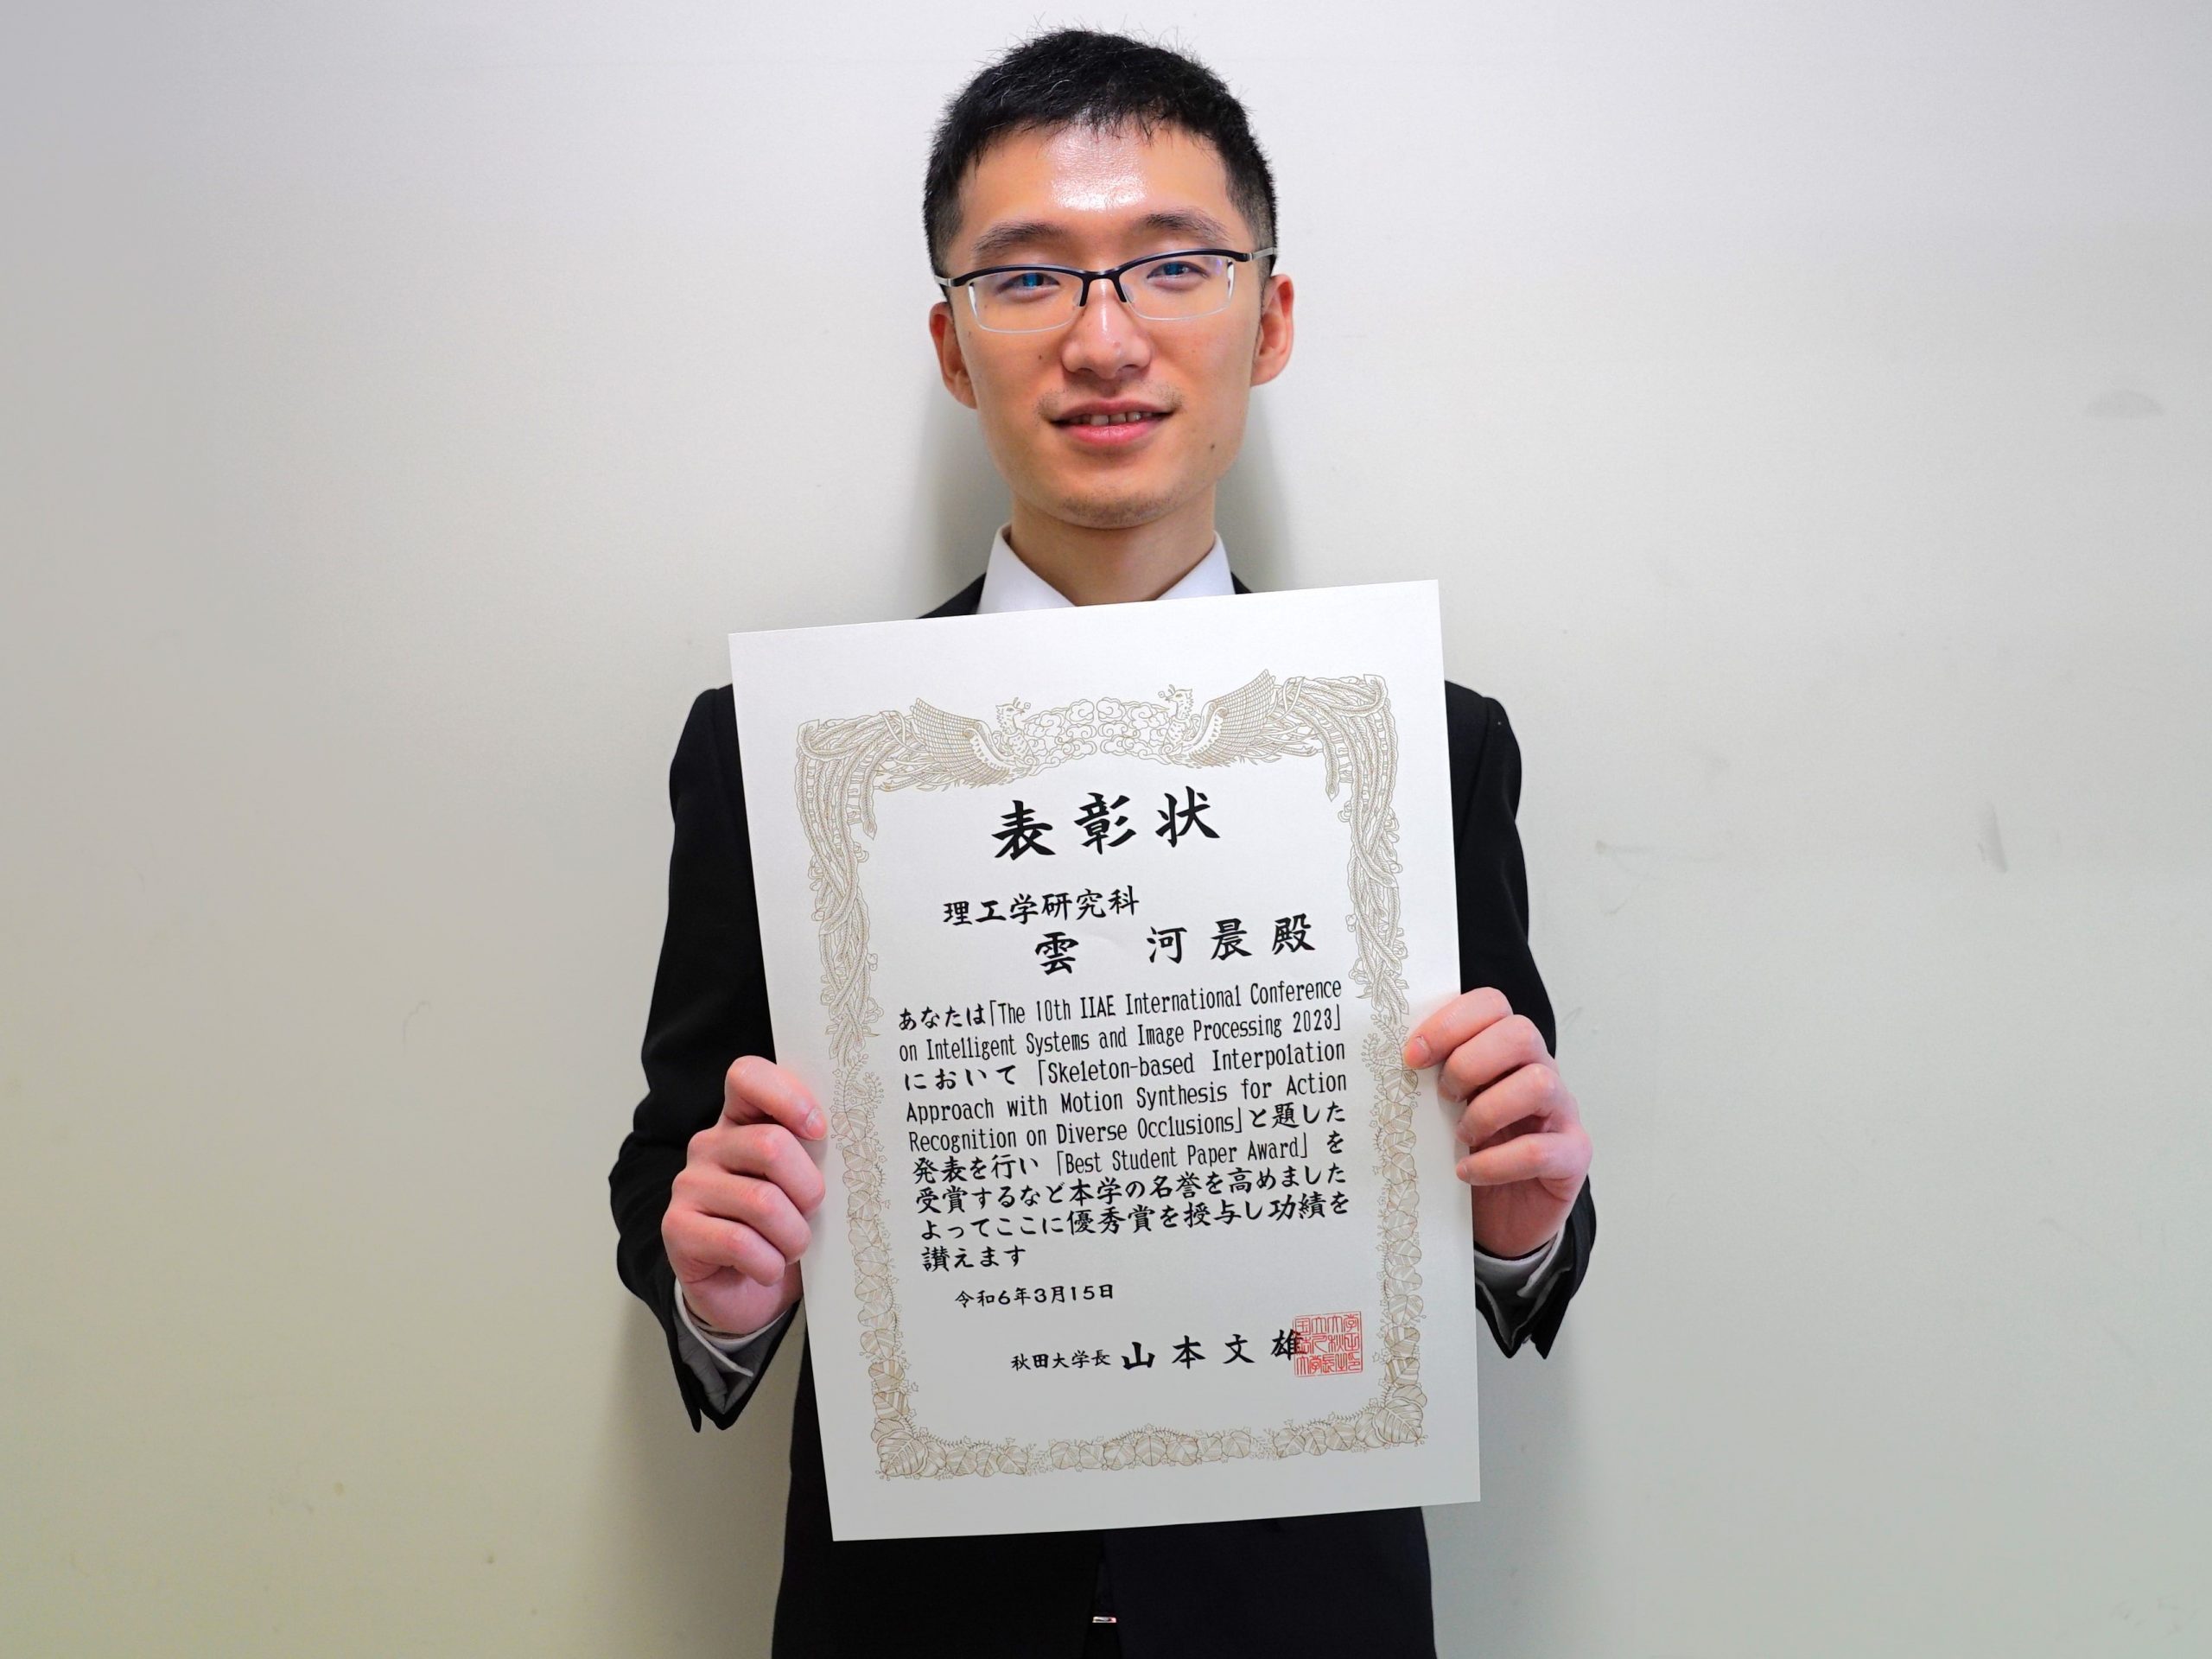 表彰状
理工学研究科
雲 河晨殿
あなたは「The 10th IIAE International Conference
on Intelligent Systems and Image Processing 2023」
において「Skeleton-based Interpolation
Approach with Motion Synthesis for Action
Recognition on Diverse Occlusions」と題した
発表を行い「Best Student Paper Award」を
受賞するなど本学の名誉を高めました
よってここに優秀賞を授与し功績を
讃えます
令和6年3月15日
秋田大学長 山本文雄